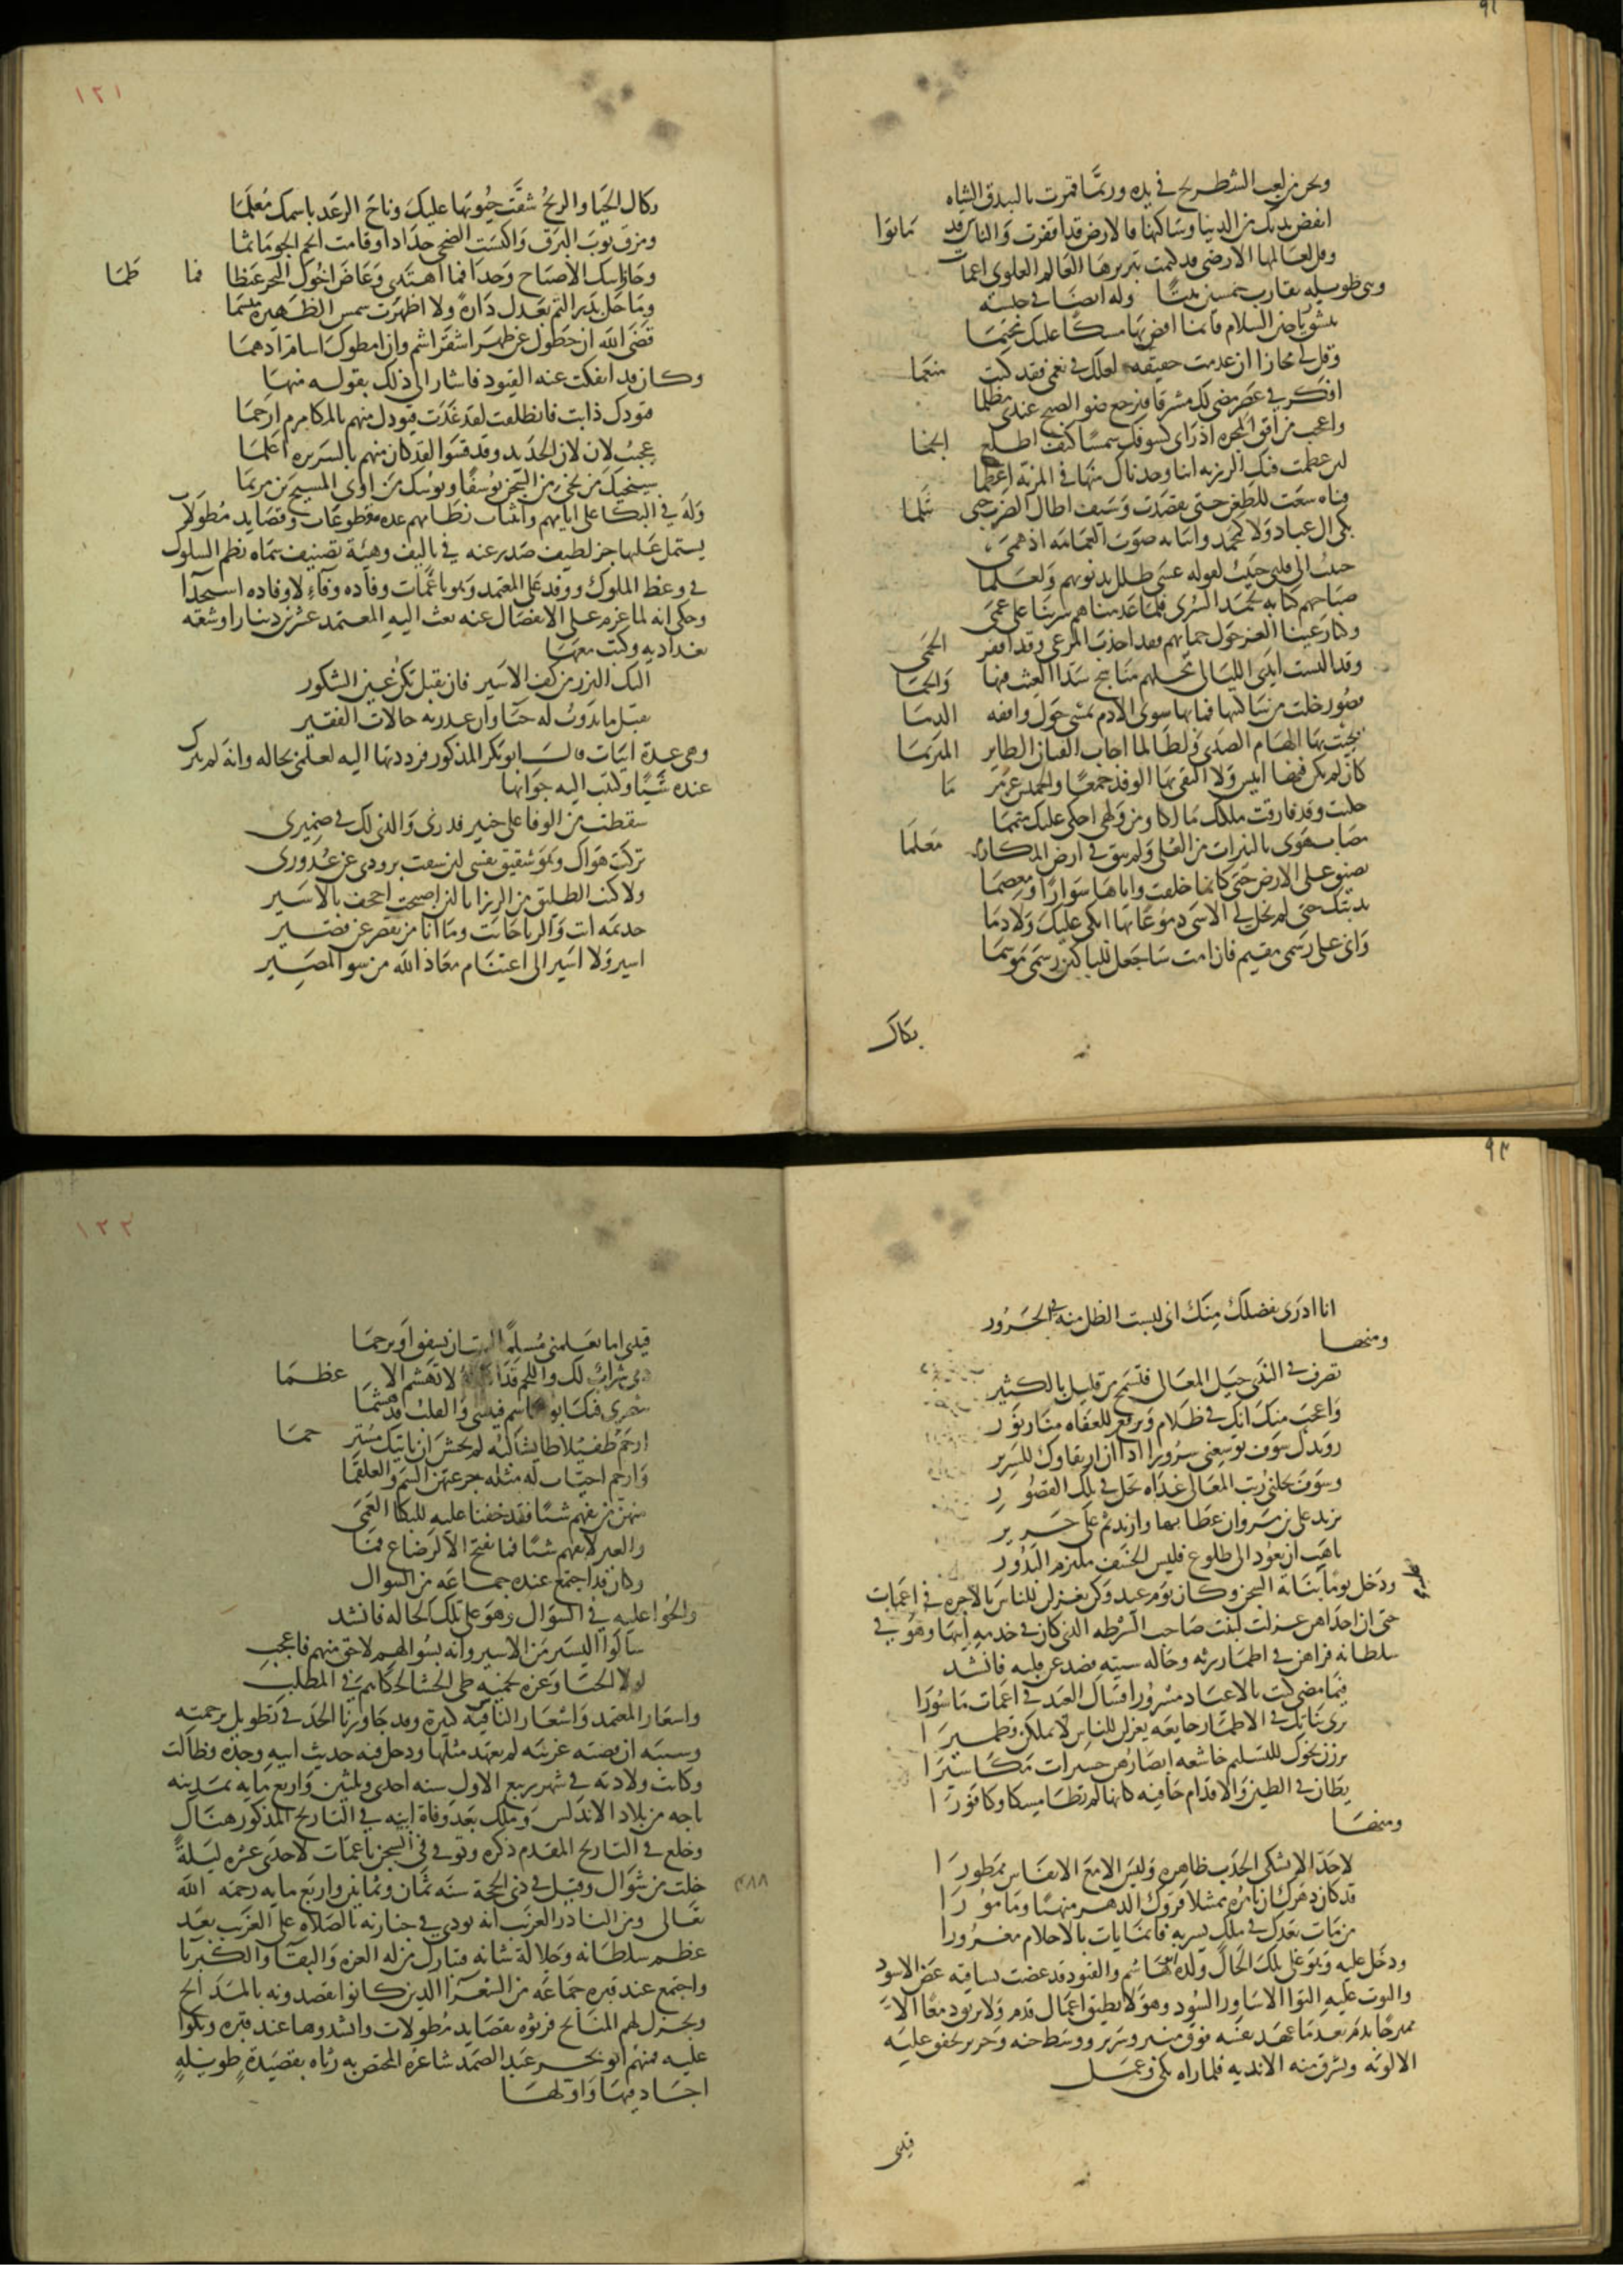 ٩٢
ونحن من لعب الشطرنج في يده وربما قمرت بالبيدق الشاه
انفض يديك من الدنيا وساكنها فالارض قد اقفرت والناس قد ماتوا
وقل لعالمها الارضي قد كتمت سريرة العالم العلوي اغمات
وهي طويلة تقارب خمسين بيتا وله ايضا في حبسه
تنشق رياحين السلام فانما افض بها مسكا عليك مختما
وقل لي مجازا ان عدمت حقيقة لعلك في نعمى فقد كنت منعما
افكر في عصر مضى لك مشرقا فيرجع ضو الصبح عندي مظلما
واعجب من افق المجره اذ راى كسوفك شمسا كيف اطلع انجما
لئن عظمت فيك الرزيه اننا وجدناك منها في المزيه اعظما
قناه سعت للطعن حتى تقصدت وسيف اطال الضرب حتى تثلما
بكى ال عباد ولا كمحمد وابنايه صوب الغمامه اذ همى
حبيب الى قلبي حبيب لقوله عسى طلل يدنو بهم ولعلما
صباحهم كنا به نحمد السرى فلما عدمناهم سرينا على عمى
وكنا رعينا العز حول حماهم فقد اجدب المرعى وقد اقفر الحمى
وقد البست ايدي الليالي محلهم مناسج سدا الغيث فيها والحما
قصور خلت من ساكنيها فما بها سوى الادم تمشي حول واقفه الدما
يجيب بها الهام الصدى ولطالما اجاب القيان الطاير المترنما
كان لم يكن فيها انيس ولا التقى بها الوفد جمعا والخميس عرمرما
حكيت وقد فارقت ملكك مالكا ومن ولهي احكي عليك متمما
مصاب هوى بالنيرات من العلى ولم يبق في ارض المكارم معلما
تضيق على الارض حتى كانما خلقت واياها سوارا ومعصما
ندبتك حتى لم يخل لي الاسى دموعا بها ابكي عليك ولا دما
واني على رسمي مقيم فان امت ساجعل للباكين رسمي موسما
بكاك
١٢١
بكاك الحيا والريح شقت جيوبها عليك وناح الرعد باسمك معلما
ومزق ثوب البرق واكتست الضحى حدادا وقامت انجم الجو ماتما
وحار ابنك الاصباح وجدا فما اهتدى وغاض اخوك البحر غيظا فما طما
وما حل بدر التم بعدك دارة ولا اظهرت شمس الظهيره مبسما
قضى الله ان حطوك عن ظهر اشقر اشم وان امطوك اشام ادهما
وكان قد انفكت عنه القيود فاشار الى ذلك بقوله منها
قيودك ذابت فانطلقت لقد غدت قيودك منهم بالمكارم ارحما
عجبت لان لان الحديد وقد قسوا لقد كان منهم بالسريره اعلما
سينجيك من نجى من السجن يوسفا ويوسك من اوى المسيح بن مريما
وله في البكا على ايامهم وانتثاب نظامهم عده مقطوعات وقصايد مطولات
يشتمل عليها جز لطيف صدر عنه في تاليف وهيئة تصنيف سماه نظم السلوك
في وعظ الملوك ووفد على المعتمد وهو باغمات وفاده وفاء لا وفاده استجدا
وحكى انه لما عزم على الانفصال عنه بعث اليه المعتمد عشرين دينارا وشقه
بغداديه وكتب معها
اليك النزر من كف الاسير فان تقبل تكن عين الشكور
تقبل ما يذوب له حياء وان عذرته حالات الفقير
وهي عدة ابيات قال ابو بكر المذكور فرددتها اليه لعلمي بحاله وانه لم يترك
عنده شيئا وكتبت اليه جوابها
سقطت من الوفا على خبير فذرني والذي لك في ضميري
تركت هواك وهو شقيق نفسي لئن شقت برودي عن غدوري
ولا كنت الطليق من الرزايا لئن اصبحت اجحف بالاسير
جذيمه انت والزبا خانت وما انا من يقصر عن قصير
اسير ولا اسير الى اغتنام معاذ الله من سو المصير
٩٣
انا ادرى بفضلك منك اني لبست الظل منه في الحرور
ومنها
تصرف في الندى حيل المعالي فتسمح من قليل بالكثير
واعجب منك انك في ظلام وترفع للعفاه منار نور
رويدك سوف توسعني سرورا اذا ان ارتقاوك للسرير
وسوف تحلني رتب المعالي غداه تحل في تلك القصور
تزيد على بن مروان عطا بها وازيد ثم على جرير
تاهب ان تعود الى طلوع فليس الخسف ملتزم البدور
ودخل يوما بناته السجن وكان يوم عيد وكن يغزلن للناس بالاجره في اغمات
حتى ان احداهن غزلت لبنت صاحب الشرطه الذي كان في خدمه ابيها وهو في
سلطانه فراهن في اطمار رثه وحاله سيئه فصدعن قلبه فانشد
فيما مضى كنت بالاعياد مسرورا فساك العيد في اغمات ماسورا
ترى بناتك في الاطمار جايعه يغزلن للناس لا يملكن قطميرا
برزن نحوك للتسليم خاشعه ابصارهن حسيرات مكاسيرا
يطان في الطين والاقدام حافيه كانها لم تطا مسكا وكافورا
ومنها
لا خد الا تشكى الجدب ظاهره وليس الا مع الانفاس ممطورا
قد كان دهرك ان تامره ممتثلا فردك الدهر منهيا ومامورا
من بات بعدك في ملك يسر به فانما بات بالاحلام مغرورا
ودخل عليه وهو على تلك الحال ولده ابو هاشم والقيود قد عضت بساقيه عض الاسود
والتوت عليه التوا الاساود السود وهو لا يطيق اعمال قدم ولا يريق دمعا الا
ممتزجا بدم بعد ما عهد نفسه فوق منبر وسرير ووسط جنه وحرير تخفق عليه
الالويه وتشرق منه الانديه فلما راه بكى وعمل
قيدي
١٢٢
قيدي اما تعلمني مسلما ابيت ان تشفق او ترحما
دمي شراب لك واللحم قد لا تهشم الا عظما
يبصرني فيك ابو هاشم فينثني والقلب قد هشما
ارحم طفيلا طايشا لبه لم يخش ان ياتيك مسترحما
وارحم اخيات له مثله جرعتهن السم والعلقما
منهن من يفهم شيئا فقد خفنا عليه للبكا العمى
والغير لا يفهم شيئا فما يفتح الا لرضاع فما
وكان قد اجتمع عنده جماعه من السوال
والحوا عليه في السوال وهو على تلك الحاله فانشد
سالوا اليسير من الاسير وانه بسوالهم لاحق منهم فاعجب
لولا الحيا وعزه لخميه طي الحشا لحكاهم في المطلب
واشعار المعتمد واشعار الناس فيه كثيره وقد جاوزنا الحد في تطويل ترجمته
وسببه ان قصته غريبه لم يعهد مثلها ودخل فيه حديث ابيه وجده فطالت
وكانت ولادته في شهر ربيع الاول سنه احدى وثلثين واربع مايه بمدينه
باجه من بلاد الاندلس وملك بعد وفاة ابيه في التاريخ المذكور هناك
وخلع في التاريخ المقدم ذكره وتوفي في السجن باغمات لاحدى عشره ليلة
خلت من شوال وقيل في ذي الحجة سنه ثمان وثمانين واربع مايه رحمه الله
٤٨٨
تعالى ومن النادر الغريب انه نودي في جنازته بالصلاه على الغريب بعد
عظم سلطانه وجلالة شانه فتبارك من له العزه والبقا والكبريا
واجتمع عند قبره جماعه من الشعرا الذين كانوا يقصدونه بالمدايح
ويجزل لهم المنايح فرثوه بقصايد مطولات وانشدوها عند قبره وبكوا
عليه فمنهم ابو بحر عبد الصمد شاعره المختص به رثاه بقصيدة طويله
اجاد فيها واولها